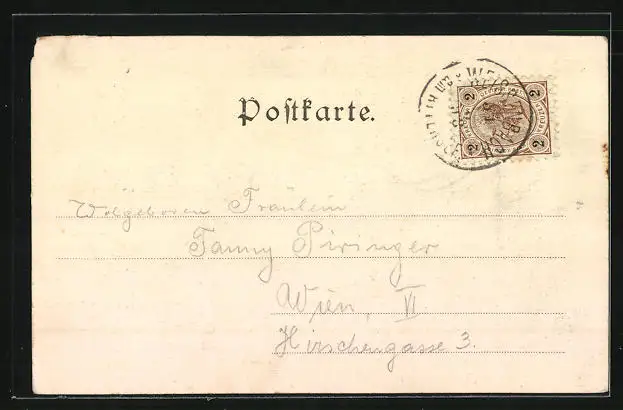 Postkarte.
2 2
2 2
Wolgeboren Fräulein
Fanny Piringer
Wien, VI.
Hirschengasse 3.